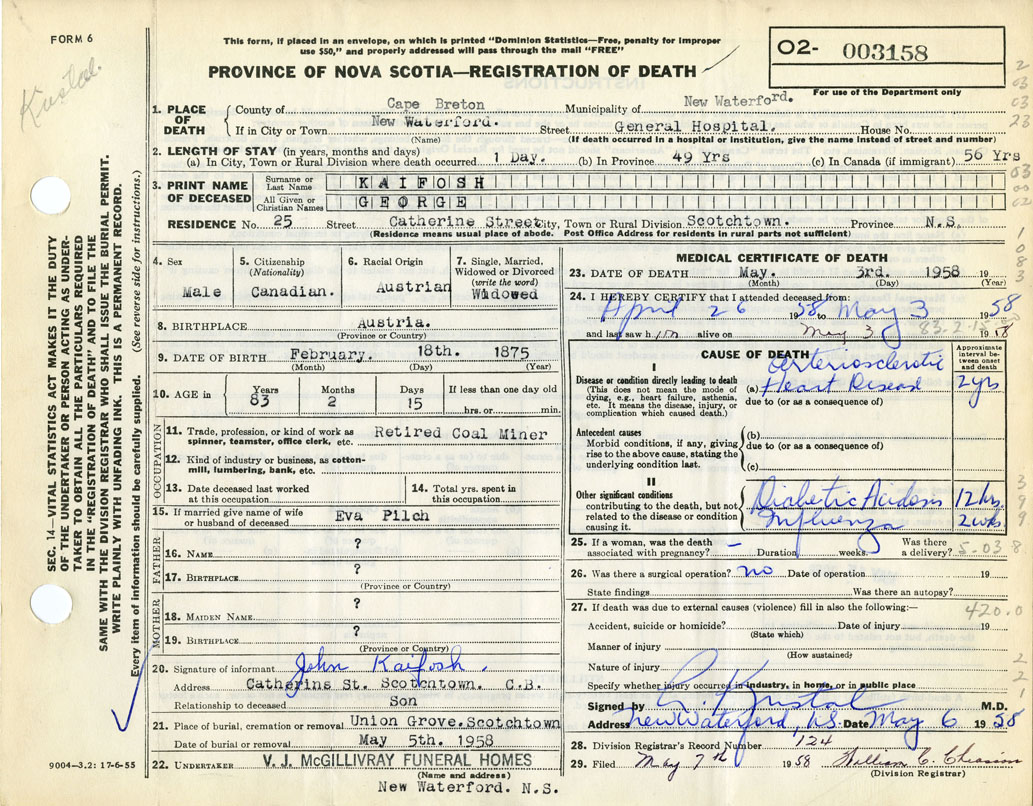 FORM 6
Kustal.
This form, if placed in an envelope, on which is printed "Dominion Statistics—Free, penalty for improper
use $50," and properly addressed will pass through the mail "FREE"
PROVINCE OF NOVA SCOTIA—REGISTRATION OF DEATH
O2- 003158
For use of the Department only
1. PLACE OF DEATH
County of Cape Breton Municipality of New Waterford.
If in City or Town New Waterford. Street General Hospital. House No.
(Name) (If death occurred in a hospital or institution, give the name instead of street and number)
2. LENGTH OF STAY (in years, months and days)
(a) In City, Town or Rural Division where death occurred 1 Day. (b) In Province 49 Yrs (c) In Canada (if immigrant) 56 Yrs
3. PRINT NAME OF DECEASED
Surname or Last Name KAIFOSH
All Given or Christian Names GEORGE
RESIDENCE No. 25 Street Catherine Street City, Town or Rural Division Scotchtown. Province N.S.
(Residence means usual place of abode. Post Office Address for residents in rural parts not sufficient)
4. Sex
Male
5. Citizenship
(Nationality)
Canadian.
6. Racial Origin
Austrian
7. Single, Married,
Widowed or Divorced
(write the word)
Widowed
8. BIRTHPLACE Austria.
(Province or Country)
9. DATE OF BIRTH February. 18th. 1875
(Month) (Day) (Year)
10. AGE in
Years Months Days If less than one day old
83 2 15 hrs. or min.
OCCUPATION
11. Trade, profession, or kind of work as
spinner, teamster, office clerk, etc. Retired Coal Miner
12. Kind of industry or business, as cotton-
mill, lumbering, bank, etc.
13. Date deceased last worked
at this occupation
14. Total yrs. spent in
this occupation
15. If married give name of wife
or husband of deceased Eva Pilch
FATHER
16. NAME ?
17. BIRTHPLACE ?
(Province or Country)
MOTHER
18. MAIDEN NAME ?
19. BIRTHPLACE ?
(Province or Country)
20. Signature of informant John Kaifosh.
Address Catherins St. Scotchtown. C.B.
Relationship to deceased Son
21. Place of burial, cremation or removal Union Grove.Scotchtown
Date of burial or removal May 5th. 1958
22. UNDERTAKER V. J. McGILLIVRAY FUNERAL HOMES
(Name and address)
New Waterford. N.S.
MEDICAL CERTIFICATE OF DEATH
23. DATE OF DEATH May. 3rd. 1958 19
(Month) (Day) (Year)
24. I HEREBY CERTIFY that I attended deceased from:
April 26 1958 to May 3 1958
and last saw him alive on May 3 1958
83.2.15
CAUSE OF DEATH
Approximate
interval be-
tween onset
and death
I
Disease or condition directly leading to death
(This does not mean the mode of
dying, e.g., heart failure, asthenia,
etc. It means the disease, injury, or
complication which caused death.)
Arteriosclerotic
(a) Heart Disease 2 yrs
due to (or as a consequence of)
Antecedent causes
Morbid conditions, if any, giving
rise to the above cause, stating the
underlying condition last.
(b)
due to (or as a consequence of)
(c)
II
Other significant conditions
contributing to the death, but not
related to the disease or condition
causing it.
Diabetic Acidosis 12 hrs.
Influenza 2 wks.
25. If a woman, was the death
associated with pregnancy? – Duration weeks. Was there
a delivery?
5.03
26. Was there a surgical operation? no Date of operation 19
State findings Was there an autopsy?
27. If death was due to external causes (violence) fill in also the following:—
420.0
Accident, suicide or homicide? Date of injury 19
(State which)
Manner of injury
(How sustained)
Nature of injury
Specify whether injury occurred in industry, in home, or in public place
Signed by C. Kristal M.D.
Address New Waterford, N.S. Date May 6 1958
28. Division Registrar's Record Number 124
29. Filed May 7th 1958 William C. Chiasson
(Division Registrar)
SEC. 14—VITAL STATISTICS ACT MAKES IT THE DUTY
OF THE UNDERTAKER OR PERSON ACTING AS UNDER-
TAKER TO OBTAIN ALL THE PARTICULARS REQUIRED
IN THE "REGISTRATION OF DEATH" AND TO FILE THE
SAME WITH THE DIVISION REGISTRAR WHO SHALL ISSUE THE BURIAL PERMIT.
WRITE PLAINLY WITH UNFADING INK. THIS IS A PERMANENT RECORD.
Every item of information should be carefully supplied. (See reverse side for instructions.)
9004—3.2: 17-6-55
2
03
03
23
03
02
1
0
8
3
3
9
9
8
2
2
1